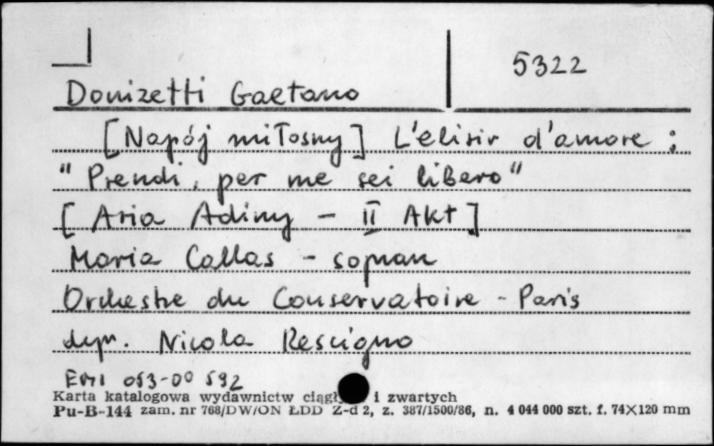 5322
Donizetti Gaetano
[Napój miłosny] L'elisir d'amore :
"Prendi, per me sei libero"
[Aria Adiny - II Akt]
Maria Callas - sopran
Orchestre du Conservatoire - Paris
dyr. Nicola Rescigno
EMI 053-00 592
Karta katalogowa wydawnictw i zwartych
Pu-B-144 zam. nr 768/DW/ON ŁDD Z-d 2, z. 387/1500/86, n. 4 044 000 szt. f. 74×120 mm